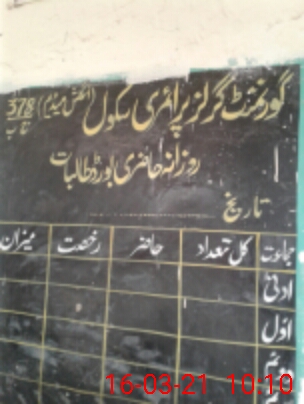 گورنمنٹ گرلز پرائمری سکول (انگلش میڈیم) 378 ج ب
روزانہ حاضری بورڈ طالبات
تاریخ
جماعت کل تعداد حاضر رخصت میزان
ادنیٰ
اوّل
16-03-21 10:10